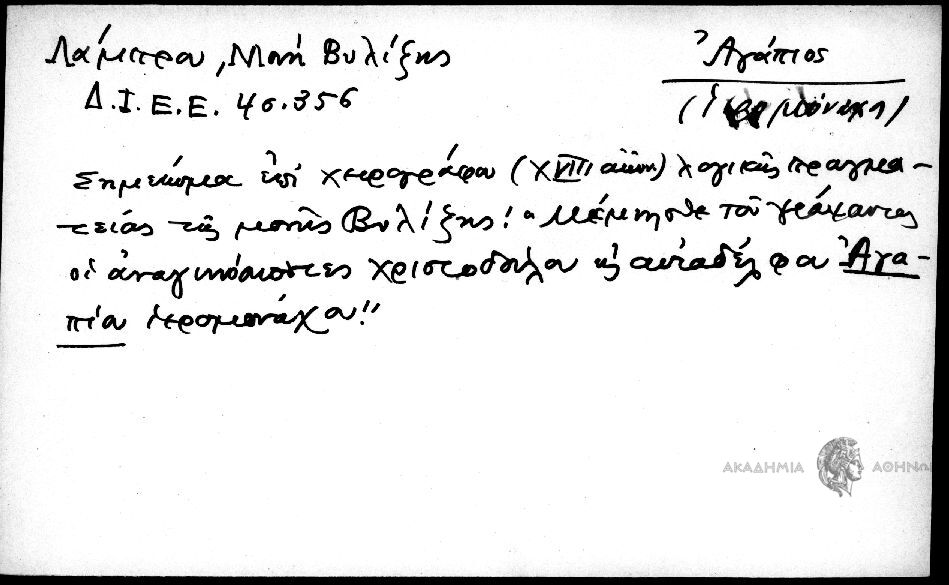 Λάμπρου, Μονή Βυλίζης
Ἀγάπιος
Δ.Ι.Ε.Ε. 4σ.356
(Ἱερομόναχος)
Σημείωμα ἐπί χειρογράφου (XVIII αἰῶν) λογικῆς πραγμα-
τείας τῆς μονῆς Βυλίζης: "Μέμνησθε τοῦ γράψαντος
οἱ ἀναγινώσκοντες Χριστοδούλου κ αὐταδέλφου Ἀγα-
πίου ἱερομονάχου"
ΑΚΑΔΗΜΙΑ ΑΘΗΝΩΝ